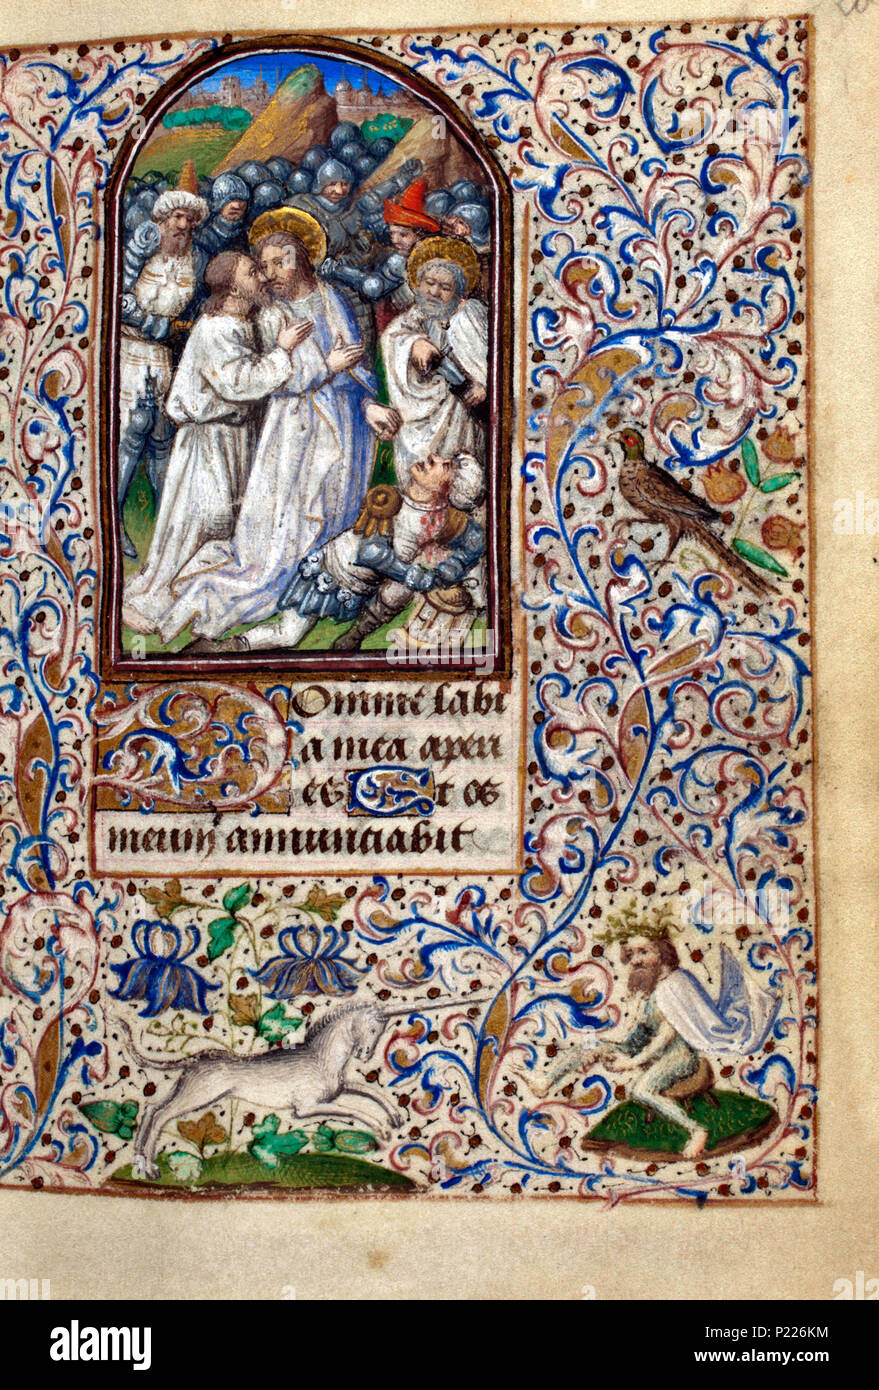 Domine labi
a mea aperi
es Et os
meum annunciabit
alamy
Image ID: P226KM
www.alamy.com